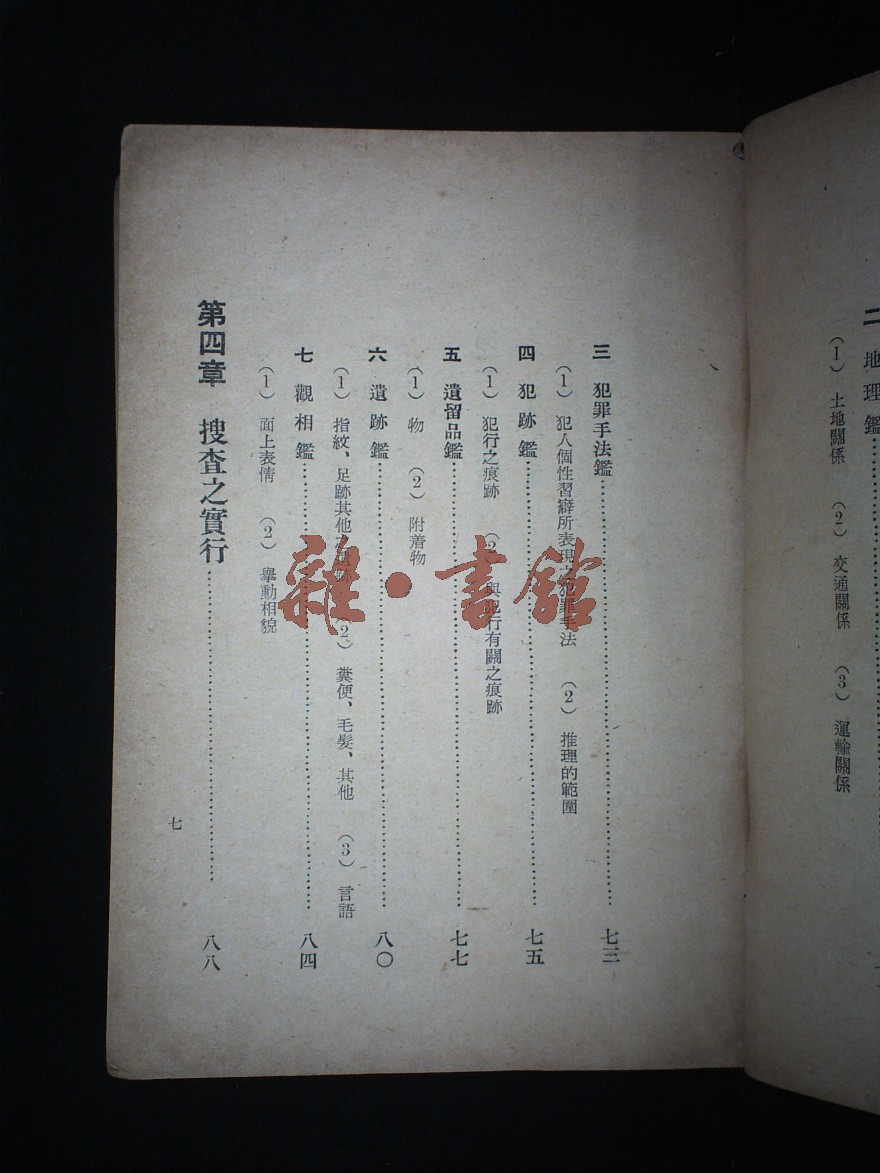 二 地理鑑
（1） 土地關係 （2） 交通關係 （3） 運輸關係
三 犯罪手法鑑 七三
（1） 犯人個性習癖所表現之犯罪手法 （2） 推理的範圍
四 犯跡鑑 七五
（1） 犯行之痕跡 （2） 與犯行有關之痕跡
五 遺留品鑑 七七
（1） 物 （2） 附着物
六 遺跡鑑 八〇
（1） 指紋、足跡其他 （2） 糞便、毛髮、其他 （3） 言語
七 觀相鑑 八四
（1） 面上表情 （2） 擧動相貌
第四章 搜查之實行 八八
七
雜·書館